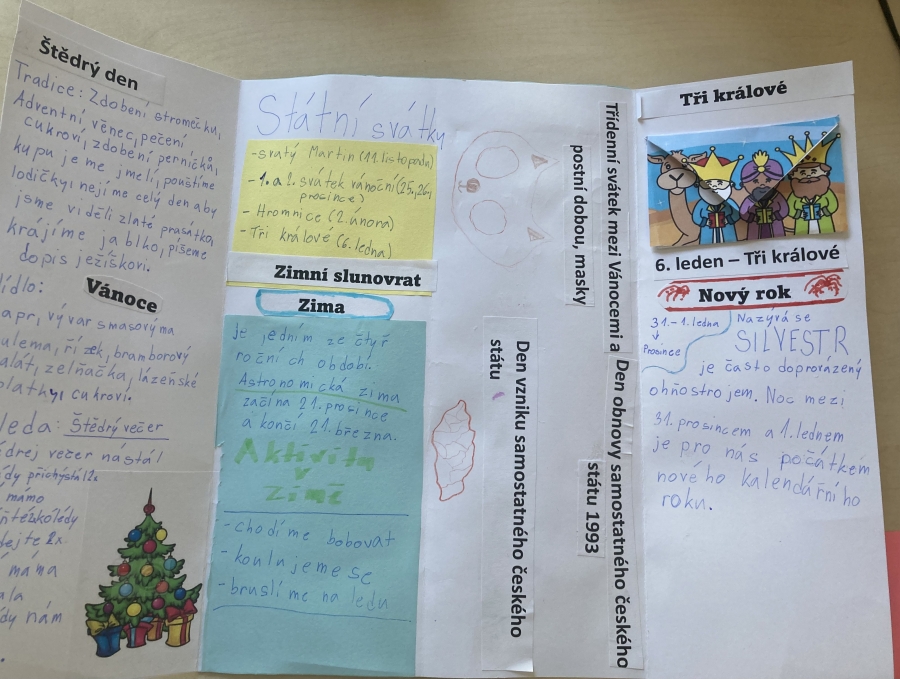 Štědrý den
Tradice: Zdobení stromečku,
Adventní věnec, pečení
cukroví, zdobení perníčků,
kupujeme jmelí, pouštíme
lodičky, nejíme celý den aby
jsme viděli zlaté prasátko,
krájíme jablko, píšeme
dopis ježíškovi.
Vánoce
apr, vývar smasovýma
ulema, řízek, bramborový
alát, zelňačka, lázeňské
platky, cukroví.
leda: Štědrý večer
drej večer nastal
dy přichystál 2x
mámo
dejte 2x
máma
ala
dy nám
Státní svátky
-svatý Martin (11. listopadu)
-1. a 2. svátek vánoční (25., 26.
prosince)
- Hromnice (2. února)
- Tři králové (6. ledna)
Zimní slunovrat
Zima
je jedním ze čtyř
ročních období.
Astronomická zima
začíná 21. prosince
a končí 21. března.
Aktivita
v
zimě
- chodíme bobovat
- koulujeme se
- bruslíme na ledu
Třídenní svátek mezi Vánocemi a
postní dobou, masky
Den vzniku samostatného českého
státu
Den obnovy samostatného českého
státu 1993
Tři králové
6. leden – Tři králové
Nový rok
31. - 1. ledna
Prosince
Nazývá se
SILVESTR
je často doprovázený
ohňostrojem. Noc mezi
31. prosincem a 1. lednem
je pro nás počátkem
nového kalendářního
roku.